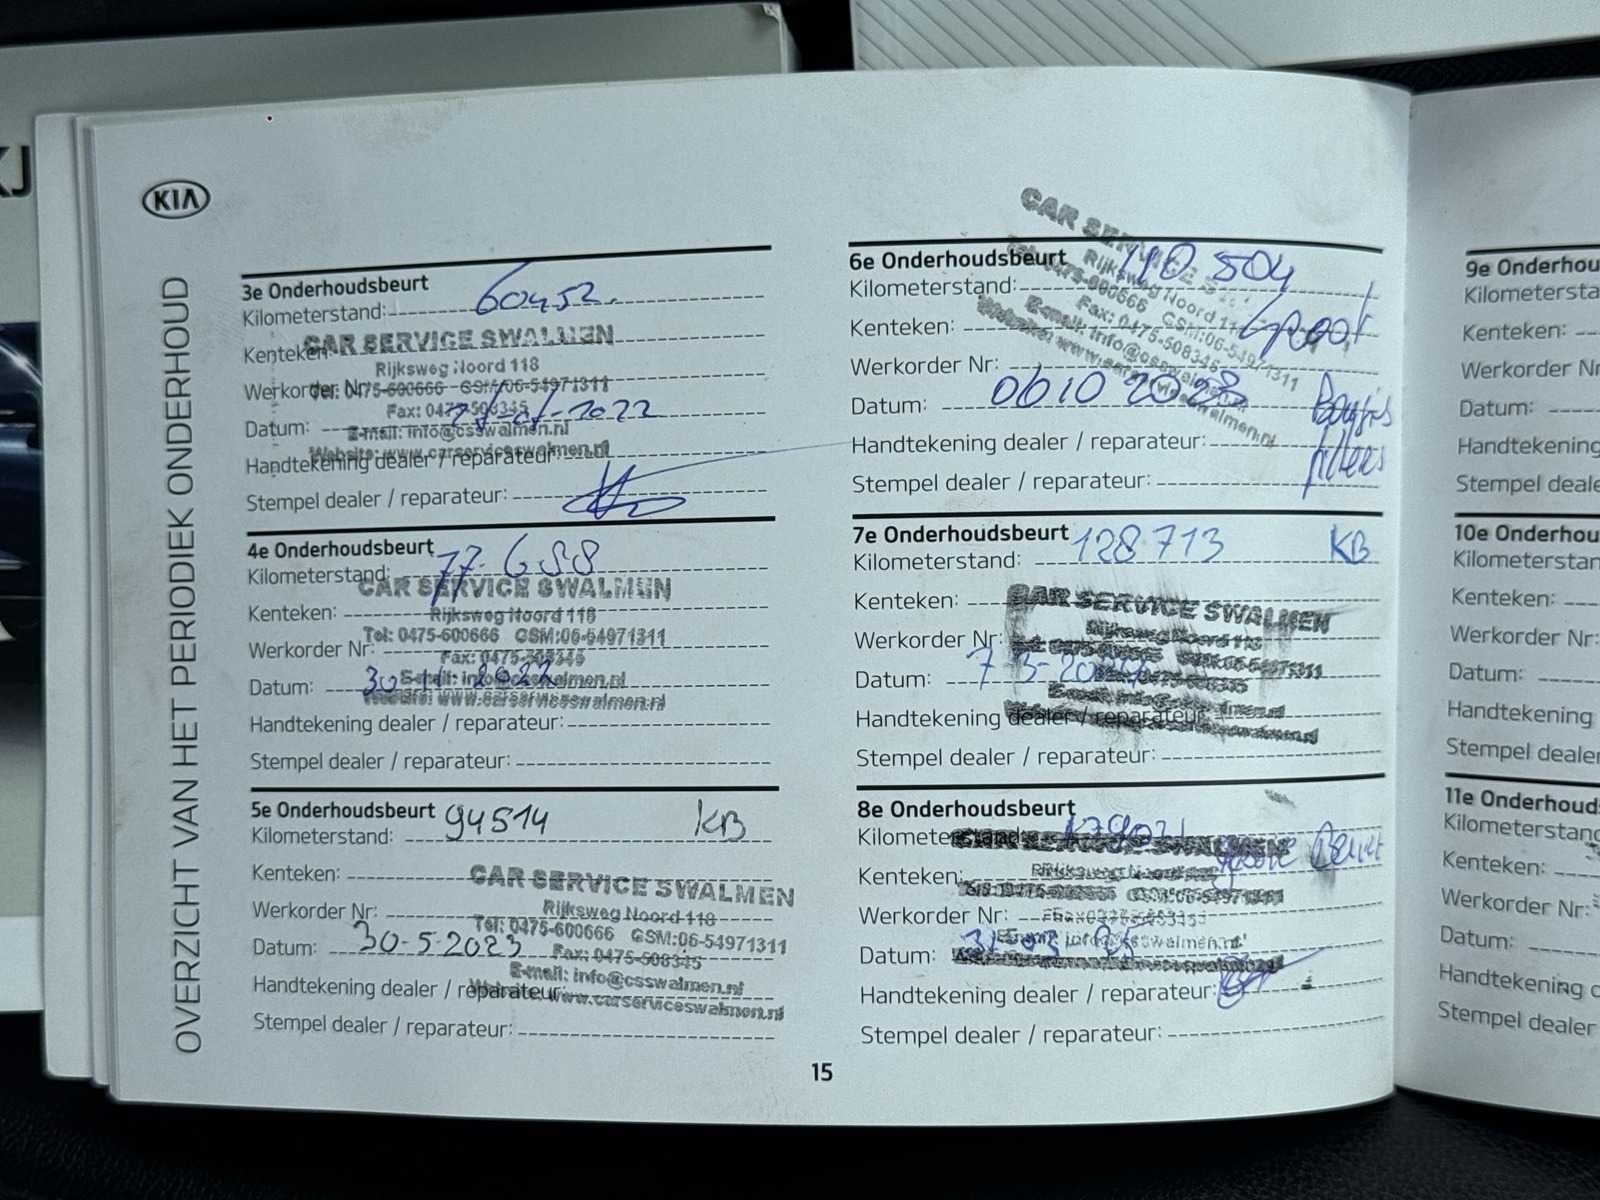 KIA
OVERZICHT VAN HET PERIODIEK ONDERHOUD
3e Onderhoudsbeurt
Kilometerstand: 60452.
Kenteken:
CAR SERVICE SWALMEN
Rijksweg Noord 118
Werkorder Nr:
Tel: 0475-600666 GSM:06-54971311
Fax: 0475-508345
Datum: 2022
E-mail: info@csswalmen.nl
Website: www.carserviceswalmen.nl
Handtekening dealer / reparateur:
Stempel dealer / reparateur:
4e Onderhoudsbeurt
Kilometerstand: 77.688
CAR SERVICE SWALMEN
Kenteken:
Rijksweg Noord 118
Tel: 0475-600666 GSM:06-54971311
Werkorder Nr:
Fax: 0475-508345
Datum: 30 11 2022
E-mail: info@csswalmen.nl
Website: www.carserviceswalmen.nl
Handtekening dealer / reparateur:
Stempel dealer / reparateur:
5e Onderhoudsbeurt
Kilometerstand: 94514 KB
Kenteken:
CAR SERVICE SWALMEN
Werkorder Nr:
Rijksweg Noord 118
Tel: 0475-600666 GSM:06-54971311
Datum: 30-5-2023
Fax: 0475-508345
E-mail: info@csswalmen.nl
Handtekening dealer / reparateur:
Website: www.carserviceswalmen.nl
Stempel dealer / reparateur:
CAR SERVICE
6e Onderhoudsbeurt
Kilometerstand: 110 504
Rijksweg Noord 118
0475-600666 GSM:06-54971311
Kenteken: Groot
Fax: 0475-508345
E-mail: info@csswalmen.nl
Website: www.carserviceswalmen.nl
Werkorder Nr:
Datum: 06 10 2023 Bougies
Handtekening dealer / reparateur: filters
Stempel dealer / reparateur:
7e Onderhoudsbeurt
Kilometerstand: 128.713 KB
Kenteken:
CAR SERVICE SWALMEN
Rijksweg Noord 118
Werkorder Nr:
Datum: 7
Handtekening dealer / reparateur:
Stempel dealer / reparateur:
8e Onderhoudsbeurt
Kilometerstand:
CAR SERVICE SWALMEN
Kenteken:
Werkorder Nr:
Datum:
Handtekening dealer / reparateur:
Stempel dealer / reparateur:
15
9e Onderhou
Kilometersta
Kenteken:
Werkorder Nr
Datum:
Handtekening
Stempel deale
10e Onderhou
Kilometerstan
Kenteken:
Werkorder Nr:
Datum:
Handtekening
Stempel dealer
11e Onderhoud
Kilometerstand
Kenteken:
Werkorder Nr:
Datum:
Handtekening d
Stempel dealer